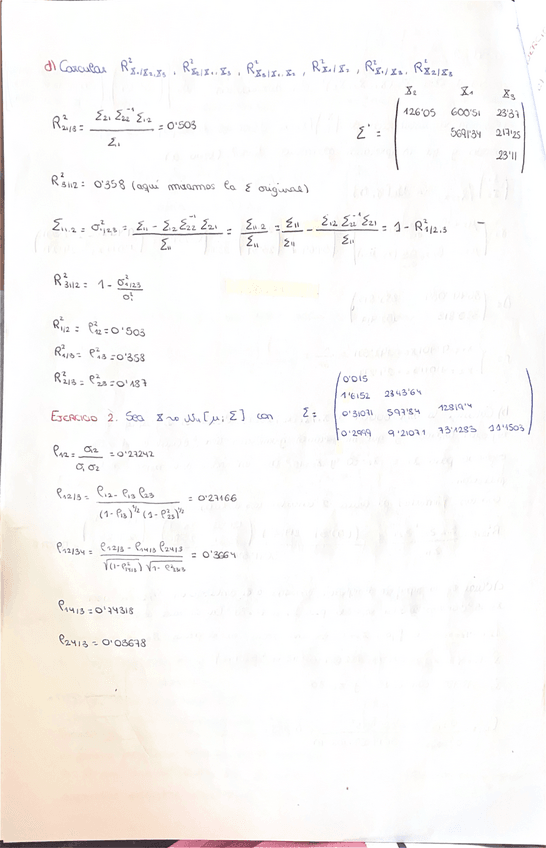 d) Calcular R²X₁/X₂,X₃ , R²X₂/X₁,X₃ , R²X₃/X₁,X₂ , R²X₁/X₂ , R²X₁/X₃ , R²X₂/X₃
X₂ X₁ X₃
R²2₁/3 = Σ₂₁ Σ₂₂⁻¹ Σ₁₂ / Σ₁₁ = 0'503
Σ* = ( 126'05 600'51 23'37
5691'34 217'25
23'11 )
R²3₁12 = 0'358 (aquí miramos la Σ original)
Σ₁₁.₂ = σ²₁/₂₃ = (Σ₁₁ - Σ₁₂ Σ₂₂⁻¹ Σ₂₁) / Σ₁₁ = Σ₁₁.₂ / Σ₁₁ = Σ₁₁ / Σ₁₁ - Σ₁₂ Σ₂₂⁻¹ Σ₂₁ / Σ₁₁ = 1 - R²₁/₂.₃
R²3₁12 = 1 - σ²₁/₂₃ / σ₁²
R²₁/₂ = ρ²₁₂ = 0'503
R²₁/₃ = ρ²₁₃ = 0'358
R²₂/₃ = ρ²₂₃ = 0'187
Ejercicio 2. Sea X ~ N₄ [μ; Σ] con Σ = ( 0'015
1'6152 2343'64
0'31071 597'84 1281'9'4
0'2999 9'21071 73'1283 11'4503 )
ρ₁₂ = σ₁₂ / σ₁ σ₂ = 0'27242
ρ₁₂/₃ = (ρ₁₂ - ρ₁₃ ρ₂₃) / (1-ρ²₁₃)^½ (1-ρ²₂₃)^½ = 0'27166
ρ₁₂/₃₄ = (ρ₁₂/₃ - ρ₁₄/₃ ρ₂₄/₃) / √(1-ρ²₁₄/₃) √1-ρ²₂₄/₃ = 0'3664
ρ₁₄/₃ = 0'74318
ρ₂₄/₃ = 0'03678